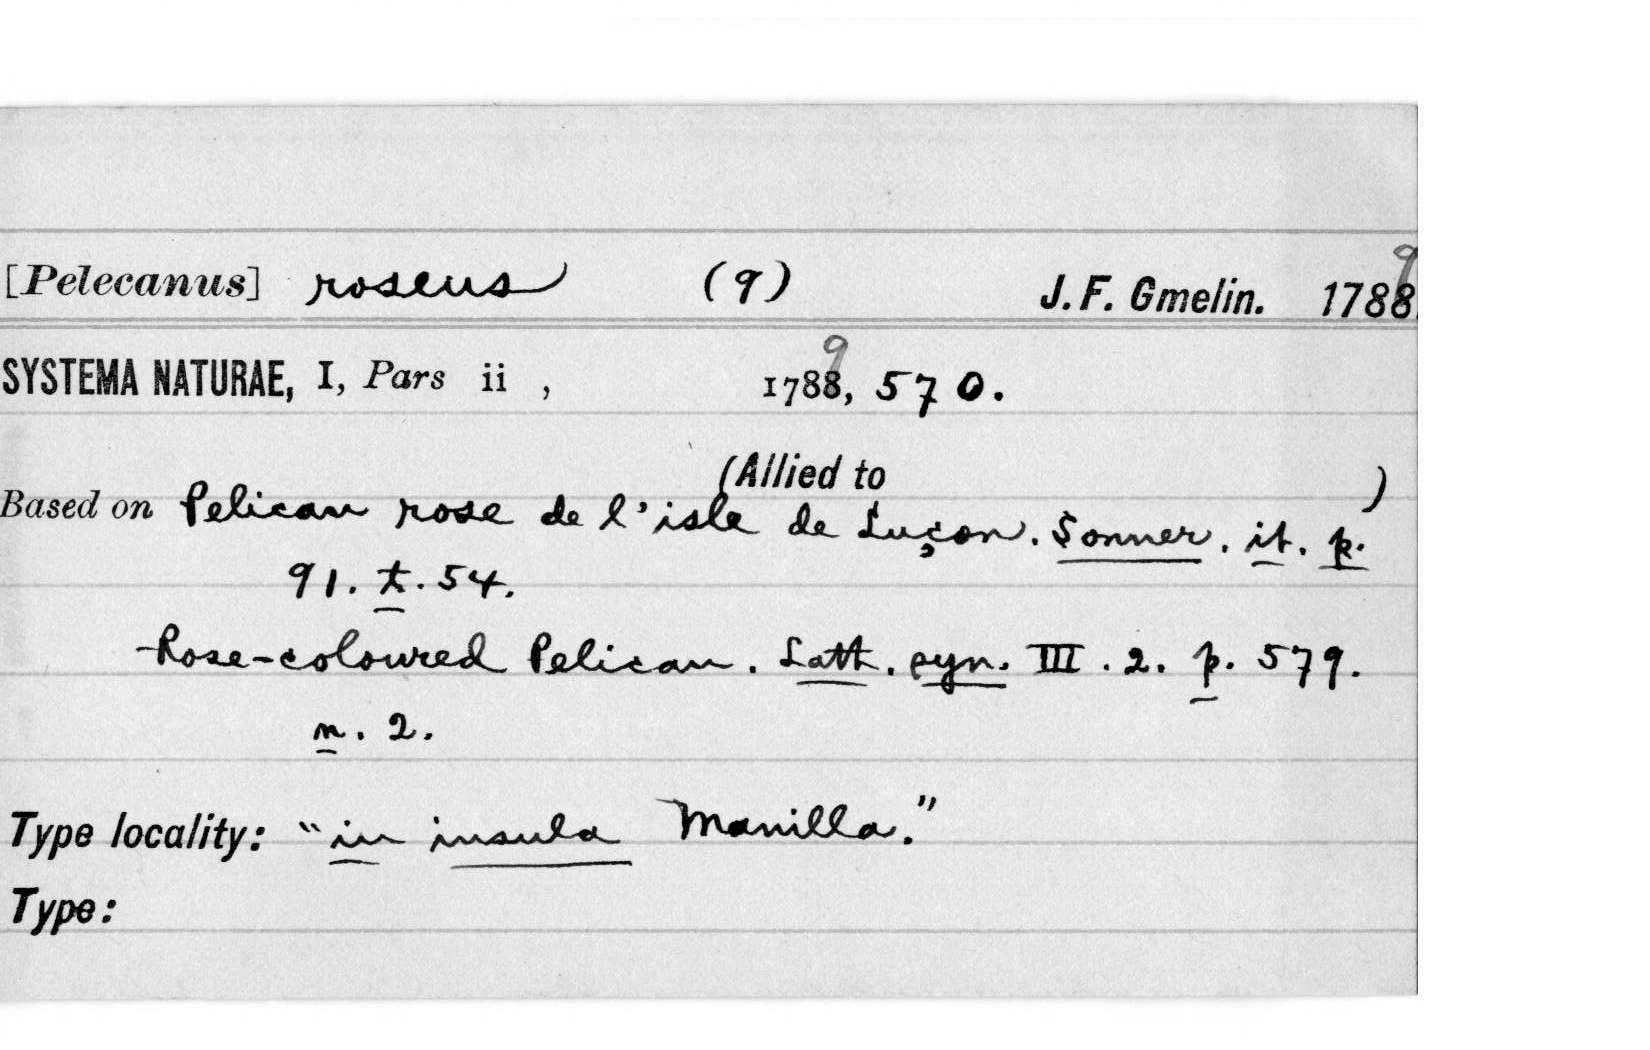 [Pelecanus] roseus (9) J. F. Gmelin. 1788 9
SYSTEMA NATURAE, I, Pars ii , 1788, 9 570.
(Allied to )
Based on Pelican rose de l'isle de Luçon. Sonner. it. p.
91. t. 54.
Rose-coloured Pelican. Lath. syn. III. 2. p. 579.
n. 2.
Type locality: "in insula Manilla."
Type: